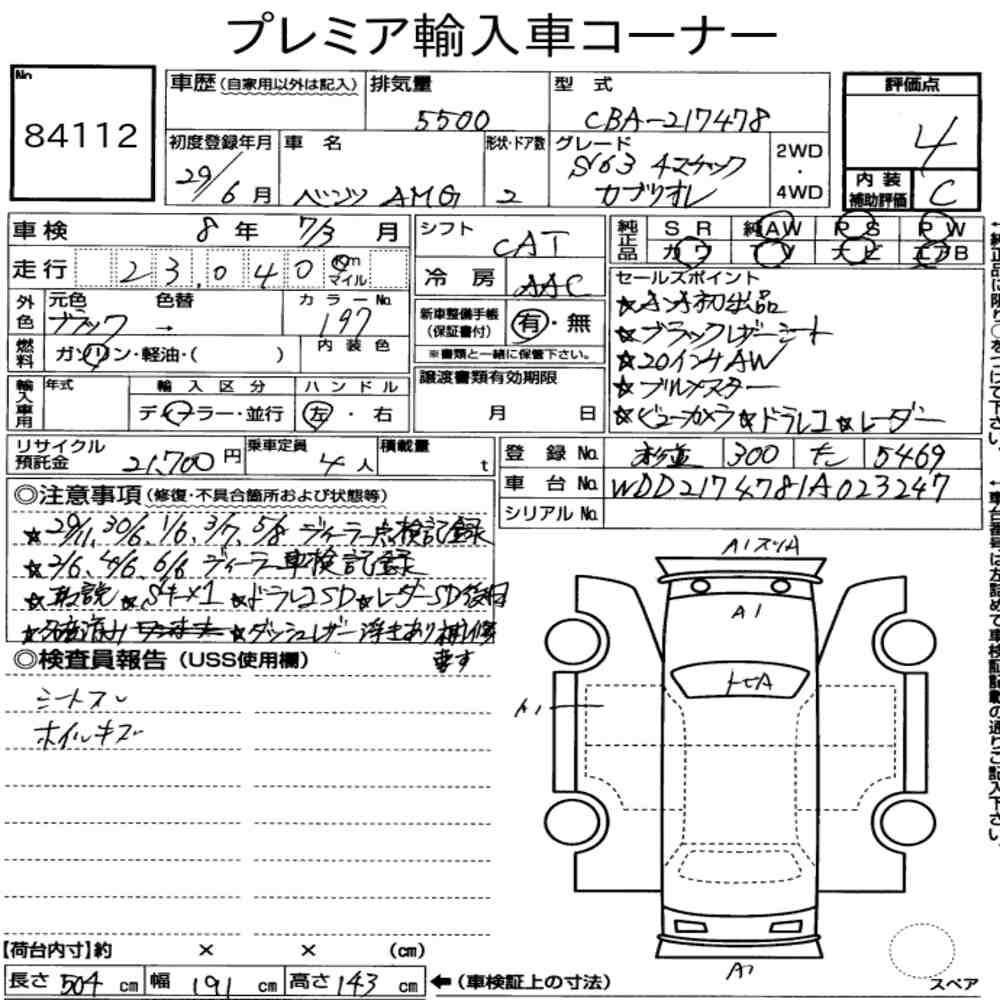 プレミア輸入車コーナー
No. 84112
車歴 (自家用以外は記入)
排気量 5500
型式 CBA-217478
評価点 4
内装補助評価 C
初度登録年月 29/6月
車名 ベンツ AMG
形状・ドア数 2
グレード S63 4マチック カブリオレ
2WD・4WD
車検 8年 7/3月
走行 23,040 Km マイル
外色 元色 ブラック → 色替
カラーNo. 197
内装色
燃料 ガソリン・軽油・( )
輸入車用 年式
輸入区分 ディーラー・並行
ハンドル 左・右
シフト CAT
冷房 AAC
新車整備手帳(保証書付) 有・無
※書類と一緒に保管下さい。
譲渡書類有効期限 月 日
純正品 SR 純AW PS PW
カワ TV ナビ エアB
セールスポイント
★ 初出品
★ブラックレザーシート
★20インチAW
★ブルメスター
★ビューカメラ★ドラレコ★レーダー
リサイクル預託金 21,700円
乗車定員 4人
積載量 t
登録No. 杉並 300 5469
車台No. WDD2174781A023247
シリアルNo.
◎注意事項(修復・不具合箇所および状態等)
★29/11, 30/6, 1/6, 3/7, 5/8 ディーラー点検記録
★2/6, 4/6, 6/6 ディーラー車検記録
★取説★Sキー×1 ★ドラレコSD★レーダーSD後日
★ダッシュレザー浮きあり
ます
◎検査員報告(USS使用欄)
シートスレ
ホイルキズ
A1 スリA
A1
トビA
A1
A1
スペア
【荷台内寸】約 × × (cm)
長さ 504 cm 幅 191 cm 高さ 143 cm ←(車検証上の寸法)
←純正品に限り○をつけて下さい。
←車台番号は左詰めで車検証記載の通りご記入下さい。